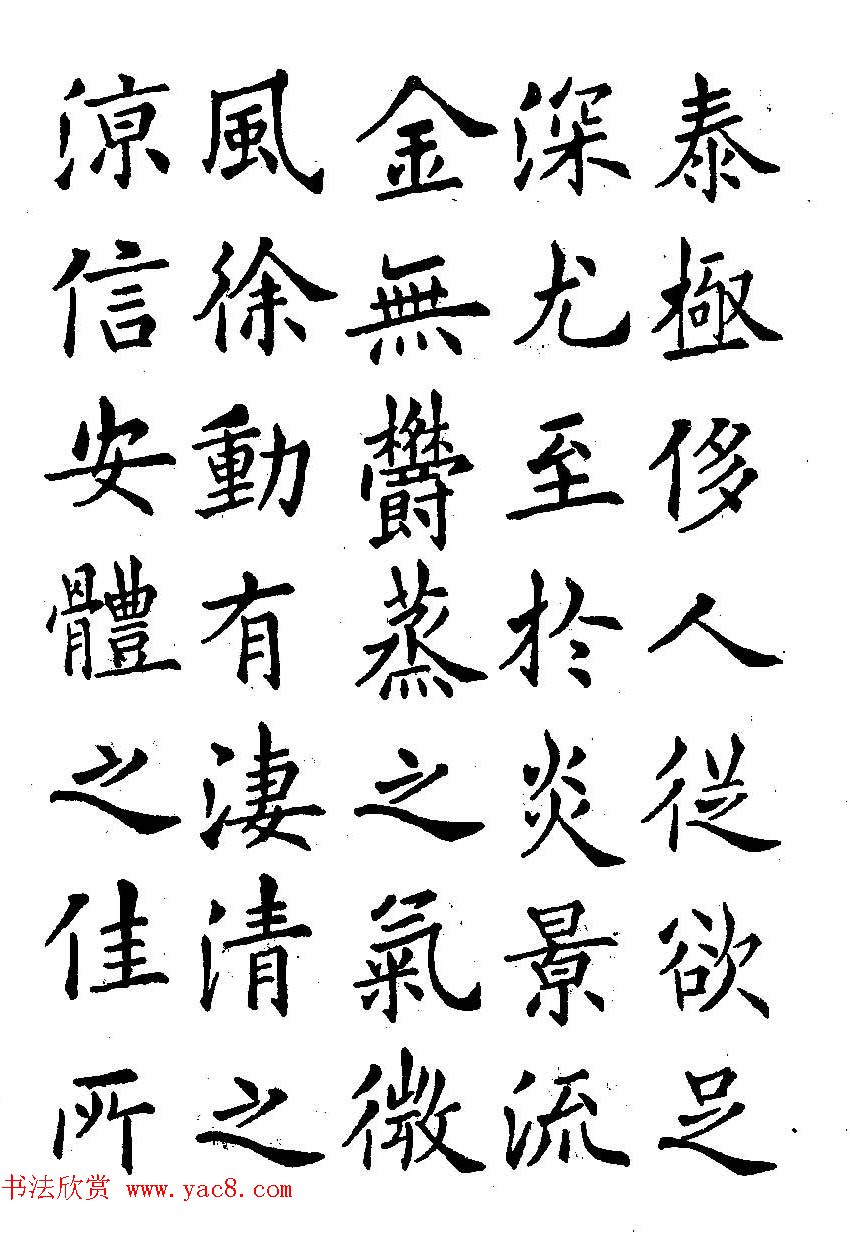 泰極侈人從欲足
深尤至於炎景流
金無欝蒸之氣微
風徐動有淒清之
涼信安體之佳所
书法欣赏 www.yac8.com